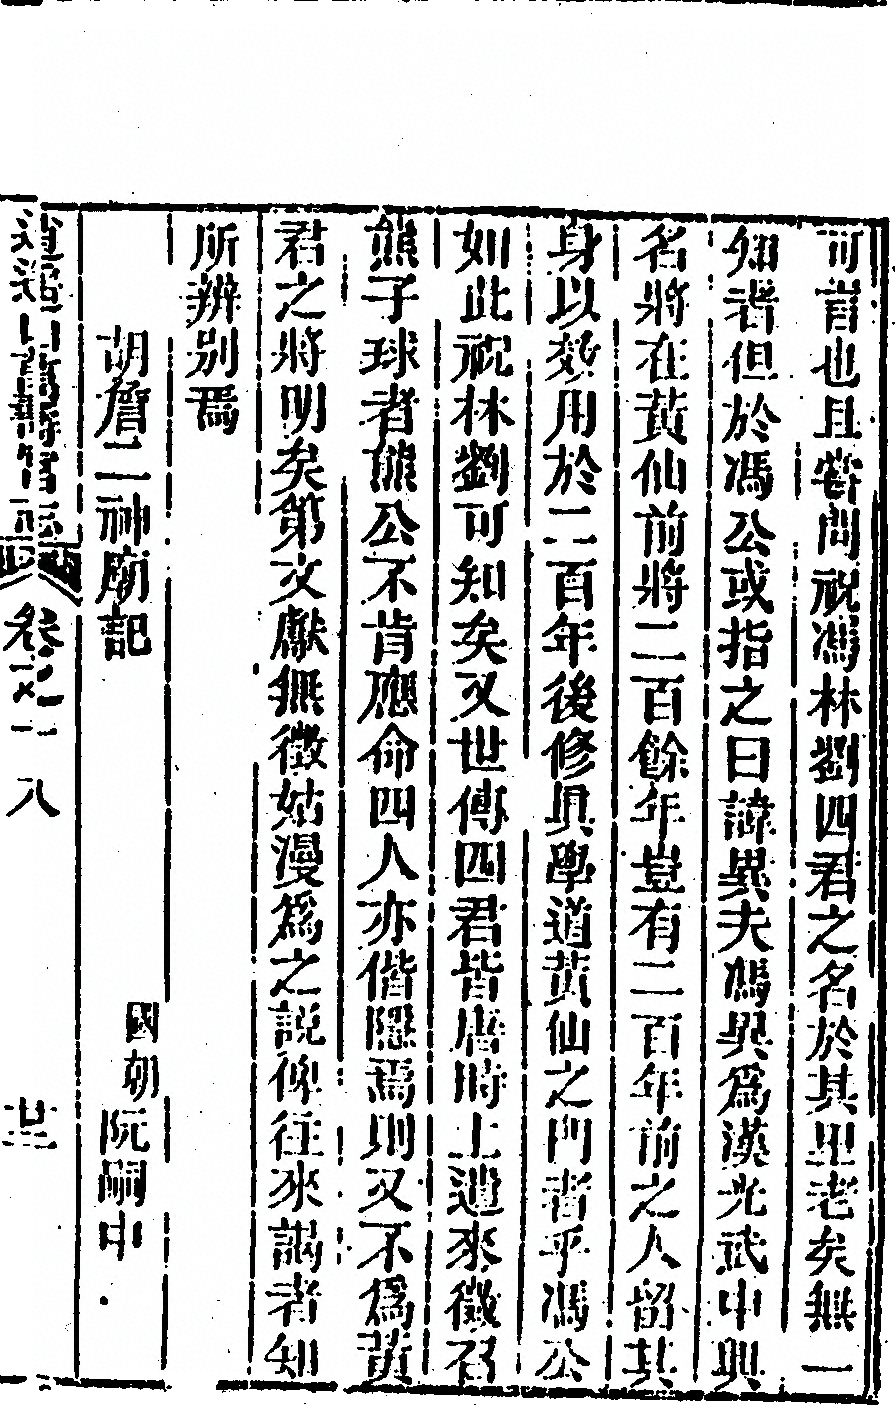 可言也且嘗問祝馮林劉四君之名於其里老矣無一
知者但於馮公或指之曰諱異夫馮異爲漢光武中興
名將在黃仙前將二百餘年豈有二百年前之人留其
身以效用於二百年後修具學道黃仙之門者乎馮公
如此祝林劉可知矣又世傳四君皆唐時上遣來徵召
熊子球者熊公不肯應命四人亦偕隱焉則又不爲黃
君之將明矣第文獻無徵姑漫爲之說俾往來謁者知
所辨別焉
胡詹二神廟記 國朝阮嗣中
逍遙山萬壽宮志 卷之十八 廿三